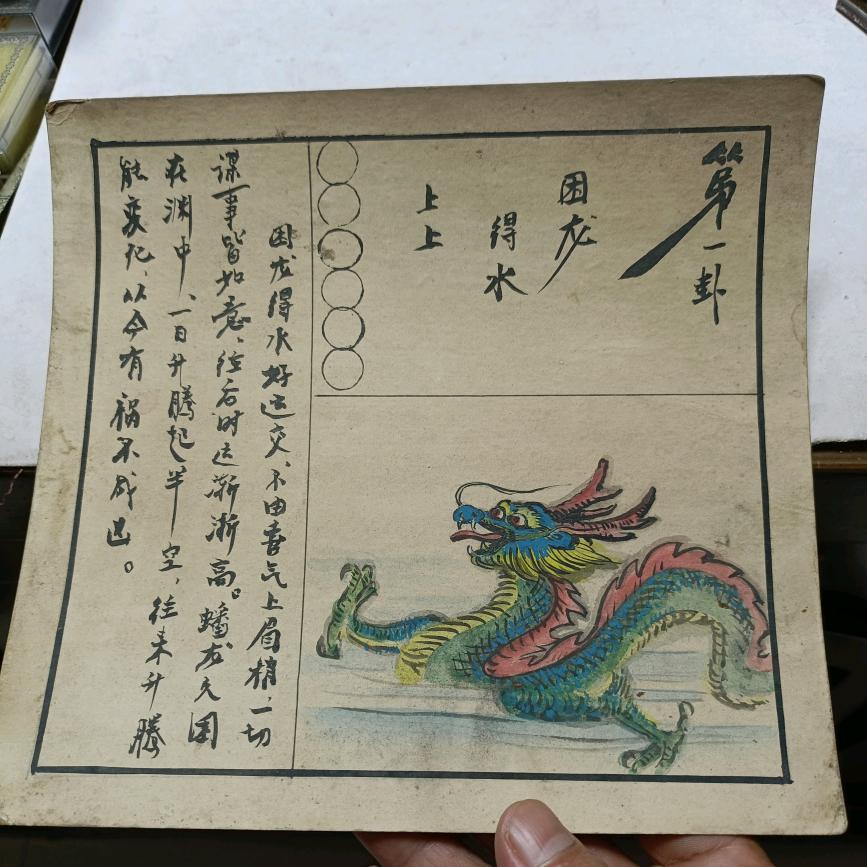 第一卦
困龙
得水
上上
困龙得水好运交、不由喜气上眉梢、一切
谋事皆如意、往后时运渐渐高。蟠龙久困
在渊中、一日升腾起半空，往来升腾
能变化，从今有祸不成凶。